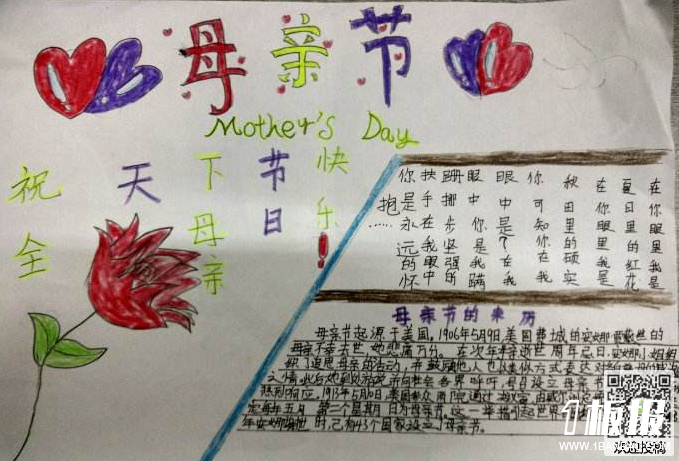 母亲节
Mother's Day
祝全
天
下母亲
节日
快乐!
在你眼里我是
夏日里的红花
在你眼里我是
秋田里的硕实
你可知你在我
眼中是?在我
眼中你是我蹒
跚挪步坚强的
扶手在我眼中
你是永远的怀
抱……
母亲节的来历
母亲节起源于美国,1906年5月9日,美国费城的安娜
母亲不幸去世,她悲痛万分。在次年母亲逝世周年忌日,安娜小姐组
织了追思母亲的活动,并鼓励他人也以类似方式表达对
之情。此后她到处游说并向社会各界呼吁,号召设立母亲节
1913年5月10日,美国众两院通过
定每年五月第二个星期日为母亲节。这一举措引起世界
年安娜谢世时,已有43个国家设立了母亲节。
1板报
欢迎投稿